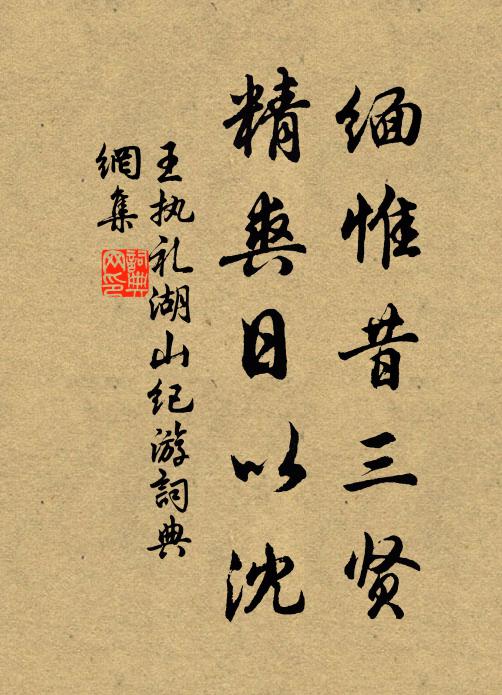 缅惟昔三贤
精爽日以沈
王执礼湖山纪游詞典
網集
詞典
网印